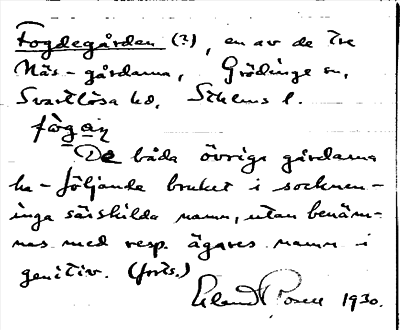 Fogdegården (?), en av de tre
Näs-gårdarna, Grödinge sn,
Svartlösa hd, Sthlms l.
fògan
De båda övriga gårdarna
ha - följande bruket i socknen -
inga särskilda namn, utan benäm-
nas med resp. ägares namn i
genitiv. (forts.)
Erland Rosell 1930.